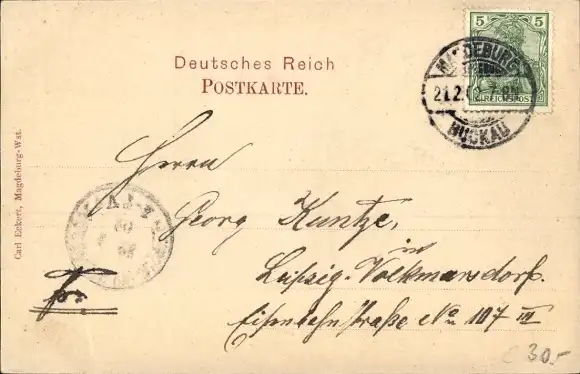 5 5
REICHSPOST
MAGDEBURG
21.2.
BUCKAU
Deutsches Reich
POSTKARTE.
Carl Eckert, Magdeburg-Wst.
Herrn
Georg Kuntze,
in
Leipzig-Volkmarsdorf.
Eisenbahnstraße No 107 III
€ 30.-